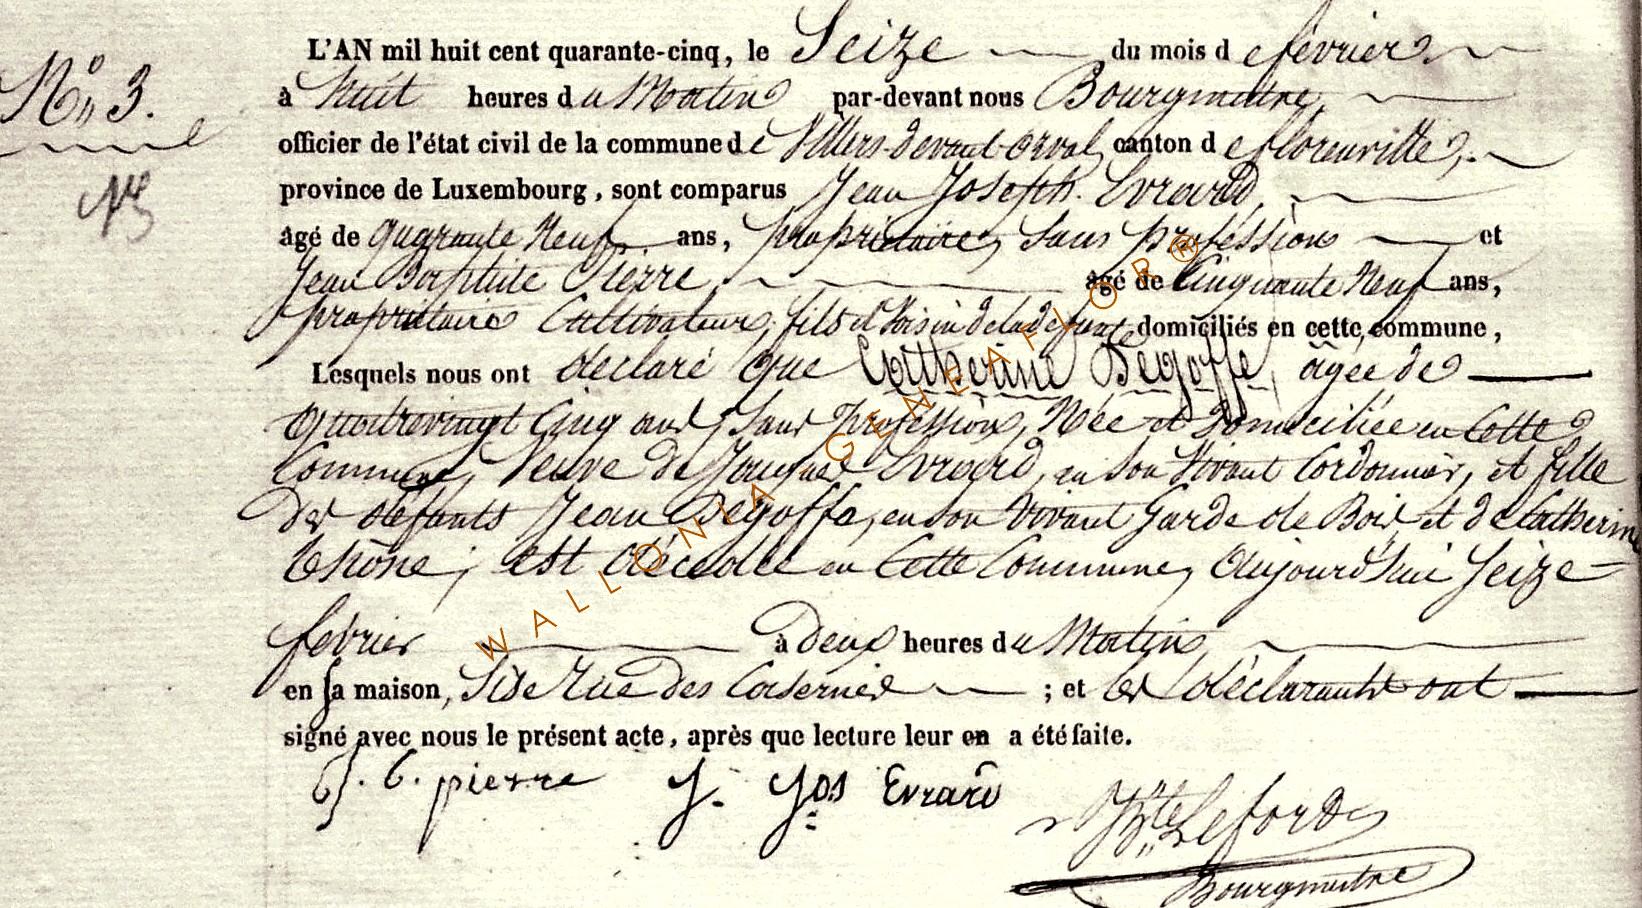 L'AN mil huit cent quarante-cinq, le Seize du mois de février
N° 3.
à huit heures du Matin par-devant nous Bourgmestre,
officier de l'état civil de la commune de Villers-devant-orval, canton de florenville,
province de Luxembourg, sont comparus Jean Joseph Evrard,
âgé de quarante Neuf ans, propriétaire, Sans proféssion et
Jean Baptiste Pierre, âgé de Cinquante Neuf ans,
propriétaire Cultivateur, fils et Voisin de la defunte, domiciliés en cette commune,
Lesquels nous ont déclaré que Catherine Degoffe, agée de
quatrevingt Cinq ans, Sans Profession, Née et Domiciliée en Cette
Commune, Veuve de Jacques Evrard, en son Vivant Cordonnier, et fille
des défunts Jean Degoffe, en son Vivant Garde de Bois et de Catherine
; est décédée en Cette Commune, Aujourd'hui Seize
fevrier à Deux heures du Matin,
en sa maison, Sise Rue des Casernes ; et les déclarants ont
signé avec nous le présent acte, après que lecture leur en a été faite.
J. B. pierre J. Jos Evrard
Bte Leforde
Bourgmestre
WALLONIA GENEAFLOR®